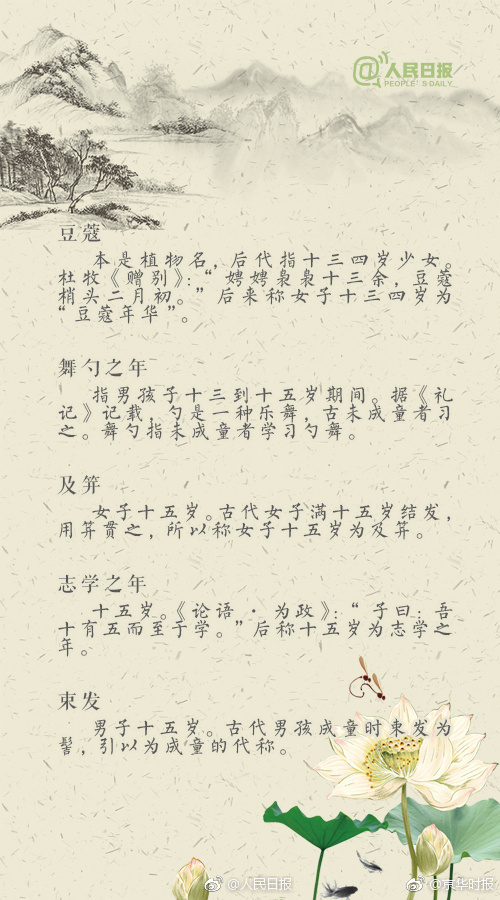 @人民日报
PEOPLE'S DAILY
豆蔻
本是植物名，后代指十三四岁少女。
杜牧《赠别》：“娉娉袅袅十三余，豆蔻
梢头二月初。”后来称女子十三四岁为
“豆蔻年华”。
舞勺之年
指男孩子十三到十五岁期间。据《礼
记》记载，勺是一种乐舞，古未成童者习
之。舞勺指未成童者学习勺舞。
及笄
女子十五岁。古代女子满十五岁结发，
用笄贯之，所以称女子十五岁为及笄。
志学之年
十五岁。《论语·为政》：“子曰：吾
十有五而至于学。”后称十五岁为志学之
年。
束发
男子十五岁。古代男孩成童时束发为
髻，引以为成童的代称。
@人民日报
@京华时报